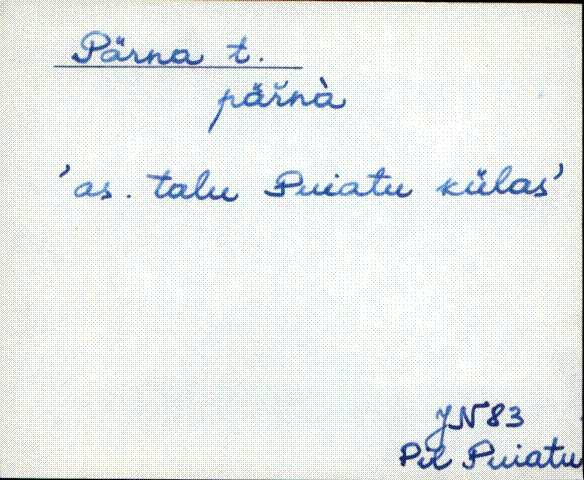 Pärna t.
pär̆nà
'as. talu Puiatu külas'
JN 83
Pil Puiatu